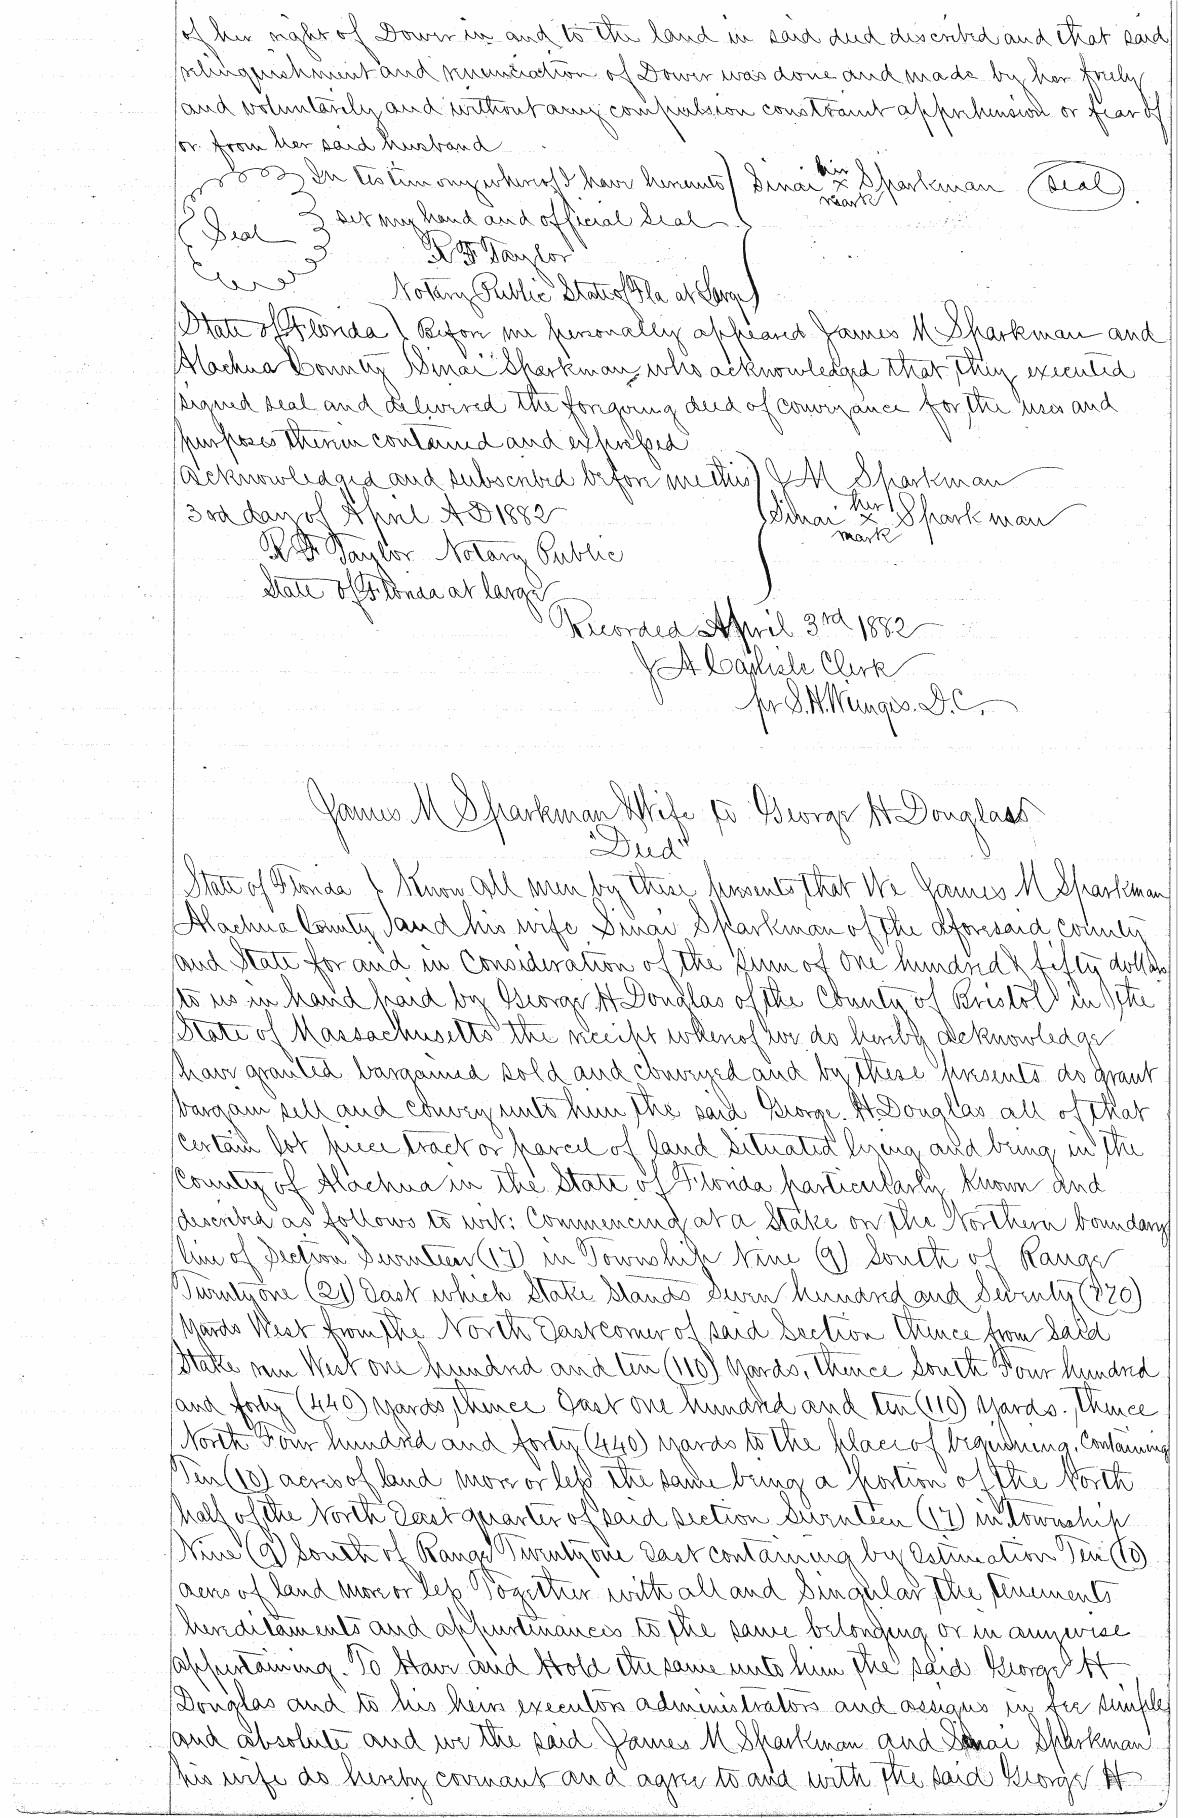 of her right of Dower in and to the land in said deed described and that said
relinquishment and renunciation of Dower was done and made by her freely
and voluntarily and without any compulsion constraint apprehension or fear of
or from her said husband
In testimony whereof I have hereunto ) Sinai her x mark Sparkman (seal)
Seal set my hand and official Seal
R F Taylor
Notary Public State of Fla at Large
State of Florida ) Before me personally appeared James M Sparkman and
Alachua County ) Sinai Sparkman who acknowledged that they executed
signed seal and delivered the foregoing deed of conveyance for the uses and
purposes therein contained and expressed
acknowledged and subscribed before me this ) J M Sparkman
3rd day of April A D 1882 ) Sinai her x mark Sparkman
R F Taylor Notary Public
State of Florida at large
Recorded April 3rd 1882
J A Carlisle Clerk
pr S.H. D.C.
James M Sparkman & Wife to George H Douglass
"Deed"
State of Florida ) Know all men by these presents that We James M Sparkman
Alachua County ) and his wife Sinai Sparkman of the aforesaid county
and State for and in Consideration of the sum of One hundred & fifty dollars
to us in hand paid by George H Douglas of the County of Bristol in the
State of Massachusetts the receipt whereof we do hereby acknowledge
have granted bargained sold and conveyed and by these presents do grant
bargain sell and convey unto him the said George H. Douglas all of that
certain lot piece tract or parcel of land situated lying and being in the
County of Alachua in the State of Florida particularly known and
described as follows to wit: Commencing at a Stake on the Northern boundary
line of Section Seventeen (17) in Township Nine (9) South of Range
Twenty one (21) East which Stake Stands Seven hundred and Seventy (770)
Yards West from the North East corner of said Section thence from Said
Stake run West one hundred and ten (110) Yards, thence South Four hundred
and forty (440) Yards, thence East one hundred and ten (110) Yards. thence
North Four hundred and forty (440) yards to the place of beginning. Containing
Ten (10) acres of land more or less the same being a portion of the North
half of the North East quarter of said section Seventeen (17) in township
Nine (9) South of Range Twenty one East containing by Estimation Ten (10)
acres of land more or less Together with all and Singular the tenements
hereditaments and appurtinances to the same belonging or in anywise
appertaining. To Have and Hold the same unto him the said George H
Douglas and to his heirs executors administrators and assigns in fee simple
and absolute and we the said James M Sparkman and Sinai Sparkman
his wife do hereby covenant and agree to and with the said George H